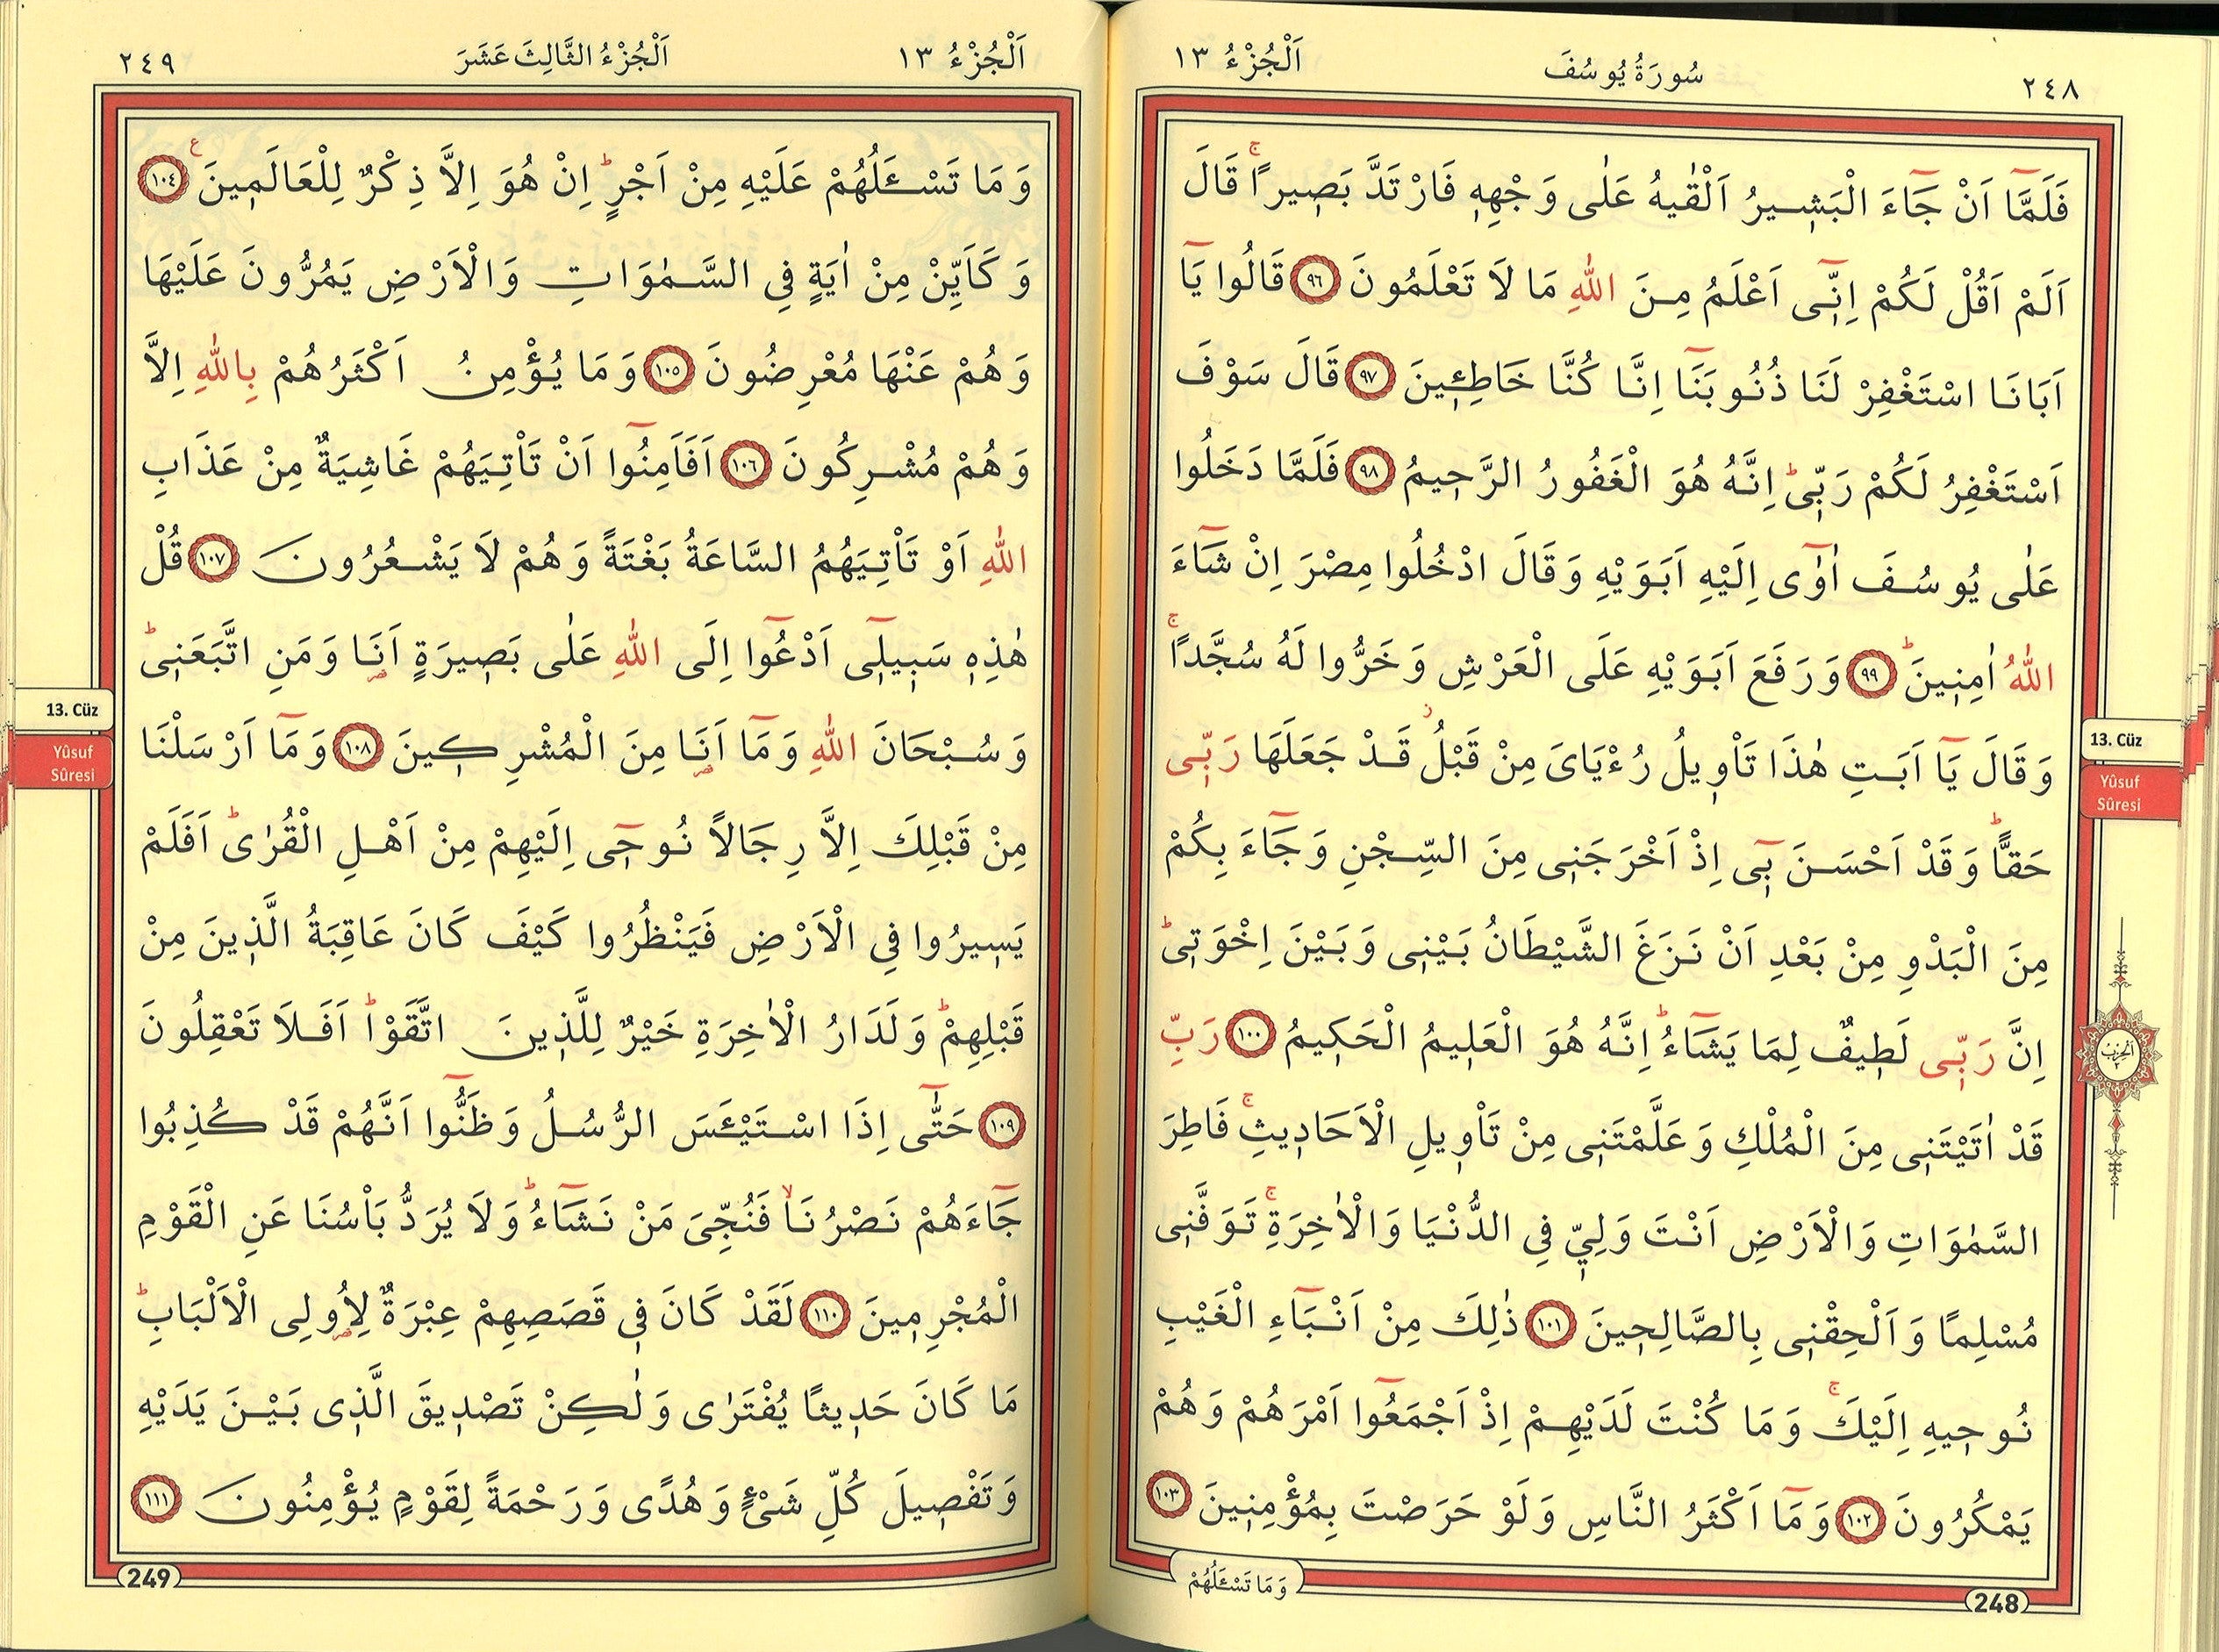 ٢٤٨
سُورَةُ يُوسُفَ
اَلْجُزْءُ ١٣
فَلَمَّٓا اَنْ جَٓاءَ الْبَشٖيرُ اَلْقٰيهُ عَلٰى وَجْهِهٖ فَارْتَدَّ بَصٖيراًۚ قَالَ
اَلَمْ اَقُلْ لَكُمْ اِنّٖٓى اَعْلَمُ مِنَ اللّٰهِ مَا لَا تَعْلَمُونَ ﴿٩٦﴾ قَالُوا يَٓا
اَبَانَا اسْتَغْفِرْ لَنَا ذُنُوبَنَٓا اِنَّا كُنَّا خَاطِـٖٔينَ ﴿٩٧﴾ قَالَ سَوْفَ
اَسْتَغْفِرُ لَكُمْ رَبّٖىؕ اِنَّهُ هُوَ الْغَفُورُ الرَّحٖيمُ ﴿٩٨﴾ فَلَمَّا دَخَلُوا
عَلٰى يُوسُفَ اٰوٰٓى اِلَيْهِ اَبَوَيْهِ وَقَالَ ادْخُلُوا مِصْرَ اِنْ شَٓاءَ
اللّٰهُ اٰمِنٖينَؕ ﴿٩٩﴾ وَرَفَعَ اَبَوَيْهِ عَلَى الْعَرْشِ وَخَرُّوا لَهُ سُجَّداًۚ
وَقَالَ يَٓا اَبَتِ هٰذَا تَاْوٖيلُ رُءْيَاىَ مِنْ قَبْلُؗ قَدْ جَعَلَهَا رَبّٖى
حَقاًّؕ وَقَدْ اَحْسَنَ بٖٓى اِذْ اَخْرَجَنٖى مِنَ السِّجْنِ وَجَٓاءَ بِكُمْ
مِنَ الْبَدْوِ مِنْ بَعْدِ اَنْ نَزَغَ الشَّيْطَانُ بَيْنٖى وَبَيْنَ اِخْوَتٖىؕ
اِنَّ رَبّٖى لَطٖيفٌ لِمَا يَشَٓاءُؕ اِنَّهُ هُوَ الْعَلٖيمُ الْحَكٖيمُ ﴿١٠٠﴾ رَبِّ
قَدْ اٰتَيْتَنٖى مِنَ الْمُلْكِ وَعَلَّمْتَنٖى مِنْ تَاْوٖيلِ الْاَحَادٖيثِۚ فَاطِرَ
السَّمٰوَاتِ وَالْاَرْضِ اَنْتَ وَلِيّٖ فِى الدُّنْيَا وَالْاٰخِرَةِۚ تَوَفَّنٖى
مُسْلِمًا وَاَلْحِقْنٖى بِالصَّالِحٖينَ ﴿١٠١﴾ ذٰلِكَ مِنْ اَنْبَٓاءِ الْغَيْبِ
نُوحٖيهِ اِلَيْكَۚ وَمَا كُنْتَ لَدَيْهِمْ اِذْ اَجْمَعُٓوا اَمْرَهُمْ وَهُمْ
يَمْكُرُونَ ﴿١٠٢﴾ وَمَٓا اَكْثَرُ النَّاسِ وَلَوْ حَرَصْتَ بِمُؤْمِنٖينَ ﴿١٠٣﴾
وَمَا تَسْـَٔلُهُمْ
248
13. Cüz
Yûsuf
Sûresi
اَلْحِزْبُ
٢
اَلْجُزْءُ ١٣
اَلْجُزْءُ الثَّالِثَ عَشَرَ
٢٤٩
وَمَا تَسْـَٔلُهُمْ عَلَيْهِ مِنْ اَجْرٍؕ اِنْ هُوَ اِلاَّ ذِكْرٌ لِلْعَالَمٖينَ ع ﴿١٠٤﴾
وَكَاَيِّنْ مِنْ اٰيَةٍ فِى السَّمٰوَاتِ وَالْاَرْضِ يَمُرُّونَ عَلَيْهَا
وَهُمْ عَنْهَا مُعْرِضُونَ ﴿١٠٥﴾ وَمَا يُؤْمِنُ اَكْثَرُهُمْ بِاللّٰهِ اِلاَّ
وَهُمْ مُشْرِكُونَ ﴿١٠٦﴾ اَفَاَمِنُٓوا اَنْ تَاْتِيَهُمْ غَاشِيَةٌ مِنْ عَذَابِ
اللّٰهِ اَوْ تَاْتِيَهُمُ السَّاعَةُ بَغْتَةً وَهُمْ لَا يَشْعُرُونَ ﴿١٠٧﴾ قُلْ
هٰذِهٖ سَبٖيلٖٓى اَدْعُٓوا اِلَى اللّٰهِ عَلٰى بَصٖيرَةٍ اَنَا۬ وَمَنِ اتَّبَعَنٖىؕ
وَسُبْحَانَ اللّٰهِ وَمَٓا اَنَا۬ مِنَ الْمُشْرِكٖينَ ﴿١٠٨﴾ وَمَٓا اَرْسَلْنَا
مِنْ قَبْلِكَ اِلاَّ رِجَالاً نُوحٖٓى اِلَيْهِمْ مِنْ اَهْلِ الْقُرٰىؕ اَفَلَمْ
يَسٖيرُوا فِى الْاَرْضِ فَيَنْظُرُوا كَيْفَ كَانَ عَاقِبَةُ الَّذٖينَ مِنْ
قَبْلِهِمْؕ وَلَدَارُ الْاٰخِرَةِ خَيْرٌ لِلَّذٖينَ اتَّقَوْاؕ اَفَلَا تَعْقِلُونَ
﴿١٠٩﴾ حَتّٰٓى اِذَا اسْتَيْـَٔسَ الرُّسُلُ وَظَنُّٓوا اَنَّهُمْ قَدْ كُذِبُوا
جَٓاءَهُمْ نَصْرُنَاۙ فَنُجِّىَ مَنْ نَشَٓاءُؕ وَلَا يُرَدُّ بَاْسُنَا عَنِ الْقَوْمِ
الْمُجْرِمٖينَ ﴿١١٠﴾ لَقَدْ كَانَ فٖى قَصَصِهِمْ عِبْرَةٌ لِاُو۬لِى الْاَلْبَابِؕ
مَا كَانَ حَدٖيثًا يُفْتَرٰى وَلٰكِنْ تَصْدٖيقَ الَّذٖى بَيْنَ يَدَيْهِ
وَتَفْصٖيلَ كُلِّ شَىْءٍ وَهُدًى وَرَحْمَةً لِقَوْمٍ يُؤْمِنُونَ ﴿١١١﴾
249
13. Cüz
Yûsuf
Sûresi